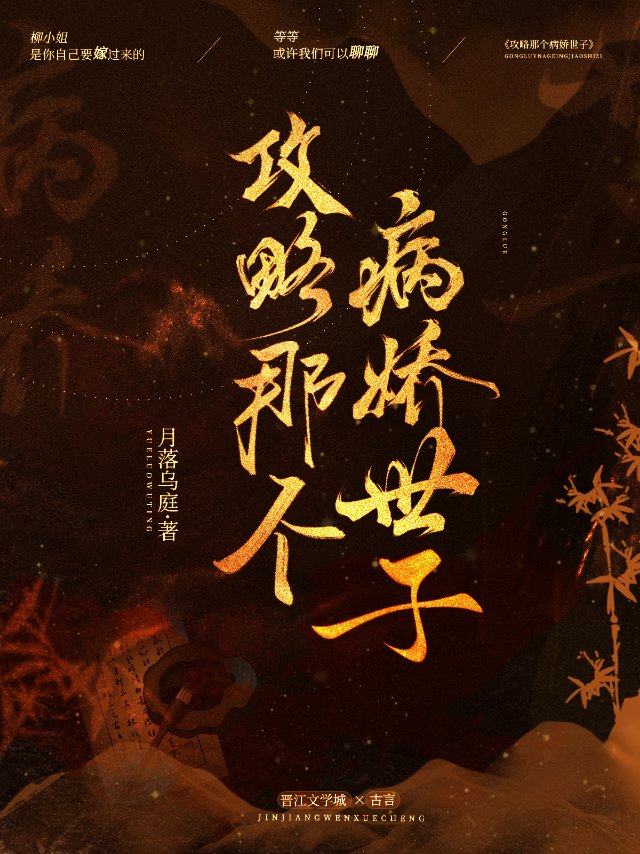 柳小姐
是你自己要嫁过来的
等等
或许我们可以聊聊
《攻略那个病娇世子》
GONGLUVNAGEINGJIAOSHIZI
攻略那个
病娇世子
GONGLUE
月落乌庭·著
YUELUOWUTING
病娇
晋江文学城 × 古言
JINJIANGWENXUECHENG